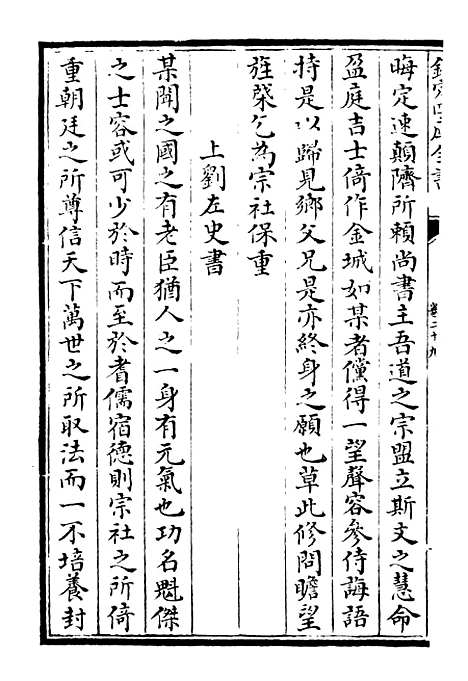 欽定四庫全書
卷二十九
晦定速顛隮所賴尚書主吾道之宗盟立斯文之慧命
盈庭吉士倚作金城如某者儻得一望聲容參侍誨語
持是以歸見鄉父兄是亦終身之願也草此修問瞻望
旌棨乞為宗社保重
上劉左史書
某聞之國之有老臣猶人之一身有元氣也功名魁傑
之士容或可少於時而至於耆儒宿德則宗社之所倚
重朝廷之所尊信天下萬世之所取法而一不培養封